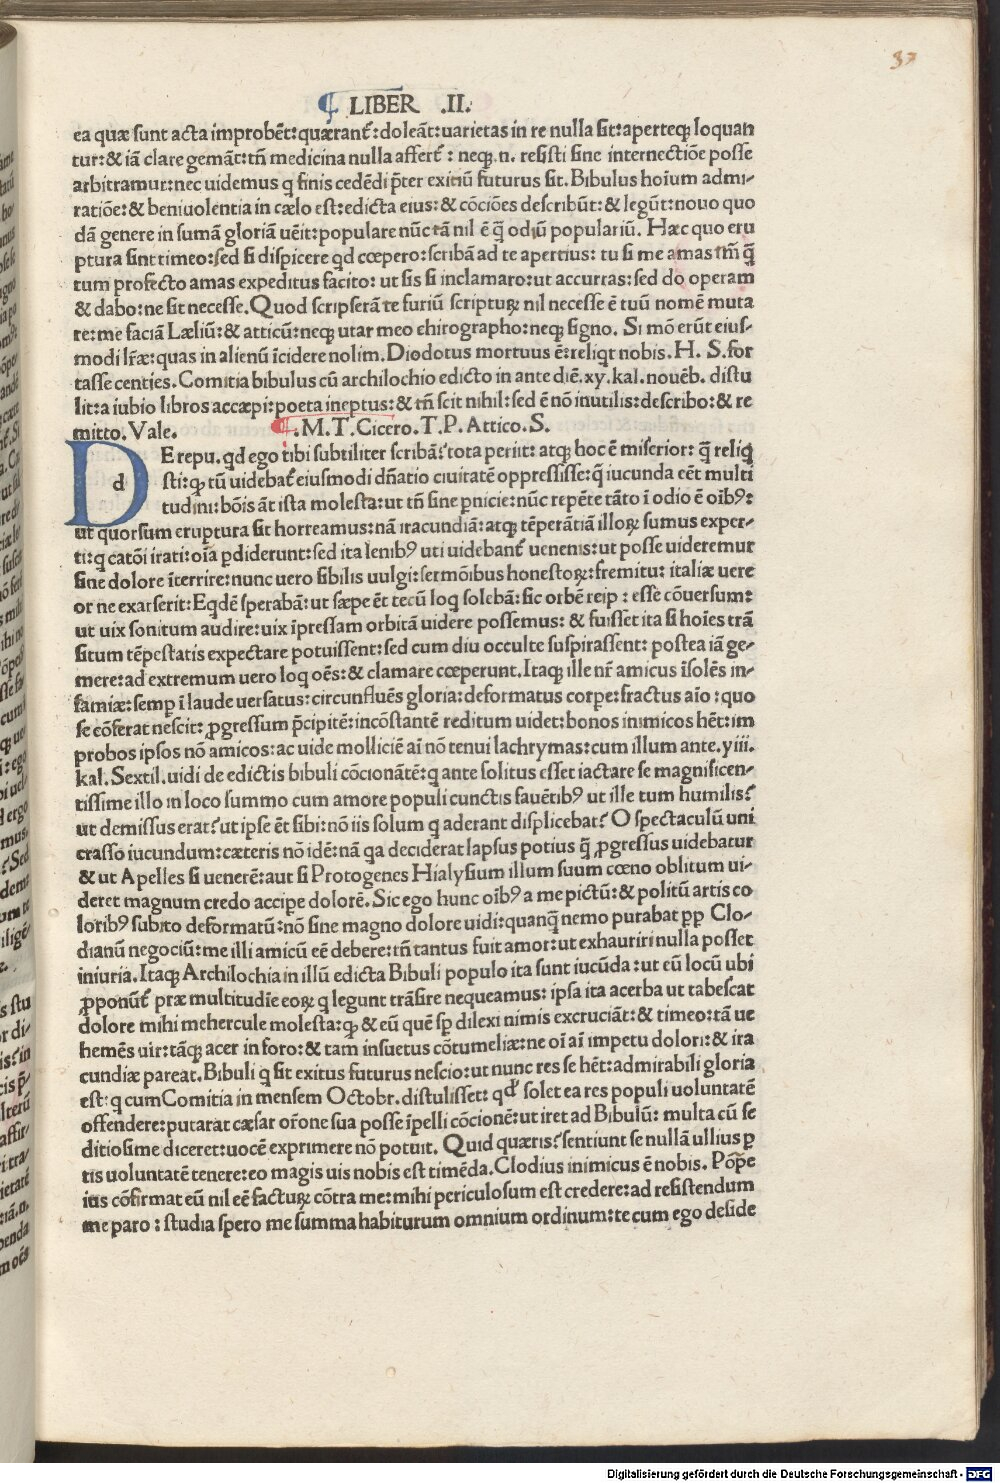 37
¶ LIBER .II.
ea quæ sunt acta improbẽt: quærant᷑: doleãt: uarietas in re nulla sit: aperteq; loquan
tur: & iã clare gemãt: tñ medicina nulla affert᷑ : neq;.n. resisti sine internectiõe posse
arbitramur: nec uidemus q finis cedẽdi p̃ter exitiũ futurus sit. Bibulus hoĩum admi-
ratiõe: & beniuolentia in cælo est: edicta eius: & cõciões describũt: & legũt: nouo quo
dã genere in sumã gloriã uẽit: populare nũc tã nil ẽ q̃ odiũ populariũ. Hæc quo eru
ptura sint timeo: sed si dispicere qd cœpero: scribã ad te apertius: tu si me amas tm̃ q̃
tum profecto amas expeditus facito: ut sis si inclamaro: ut accurras: sed do operam
& dabo: ne sit necesse. Quod scripserã te furiũ scripturꝝ nil necesse ẽ tuũ nomẽ muta
re: me faciã Læliũ: & atticũ: neq; utar meo chirographo: neq; signo. Si mõ erũt eius-
modi lr̃æ: quas in alienũ ĩcidere nolim. Diodotus mortuus ẽ: reliqt nobis. H. S. for
tasse centies. Comitia bibulus cũ archilochio edicto in ante diẽ. xy. kal. nouẽb. distu
lit: a iubio libros accæpi: poeta ineptus: & tñ scit nihil: sed ẽ nõ inutilis: describo: & re
mitto. Vale. ¶ .M. T. Cicero. T. P. Attico. S.
D d E repu. qd ego tibi subtiliter scribã? tota periit: atq; hoc ẽ miserior: q̃ reliq
sti: q; tũ uidebat᷑ eiusmodi dñatio ciuitatẽ oppressisse: q iucunda eẽt multi
tudini: bõis ãt ista molesta: ut tñ sine pnicie: nũc repẽte tãto ĩ odio ẽ oĩbꝰ:
ut quorsum eruptura sit horreamus: nã iracundiã: atq; tẽperãtiã illoꝝ sumus exper-
ti: q catõi irati: oĩa pdiderunt: sed ita lenibꝰ uti uidebant᷑ uenenis: ut posse uideremur
sine dolore ĩterrire: nunc uero sibilis uulgi: sermõibus honestoꝝ: fremitu: italiæ uere
or ne exarserit: Eqdẽ sperabã: ut sæpe ẽt tecũ loq solebã: sic orbẽ reip : esse cõuersum:
ut uix sonitum audire: uix ĩpressam orbitã uidere possemus: & fuisset ita si hoĩes trã
situm tẽpestatis expectare potuissent: sed cum diu occulte suspirassent: postea iã ge-
mere: ad extremum uero loq oẽs: & clamare cœperunt. Itaq; ille nr̃ amicus ĩsolẽs in-
famiæ: semp ĩ laude uersatus: circunfluẽs gloria: deformatus corpe: fractus aĩo : quo
se cõferat nescit: ꝓgressum p̃cipitẽ: incõstantẽ reditum uidet: bonos inimicos hẽt: im
probos ipsos nõ amicos: ac uide molliciẽ aĩ nõ tenui lachrymas: cum illum ante. yiii.
kal. Sextil. uidi de edictis bibuli cõcionãtẽ: q ante solitus esset iactare se magnificen-
tissime illo in loco summo cum amore populi cunctis fauẽtibꝰ ut ille tum humilis?
ut demissus erat? ut ipse ẽt sibi: nõ iis solum q aderant displicebat? O spectaculũ uni
crasso iucundum: cæteris nõ idẽ: nã qa deciderat lapsus potius q̃ ꝓgressus uidebatur
& ut Apelles si uenerẽ: aut si Protogenes Hialysium illum suum cœno oblitum ui-
deret magnum credo accipe dolorẽ. Sic ego hunc oĩbꝰ a me pictũ: & politũ artis co
loribꝰ subito deformatũ: nõ sine magno dolore uidi: quanq̃ nemo putabat pp Clo-
dianũ negociũ: me illi amicũ eẽ debere: tñ tantus fuit amor: ut exhauriri nulla posset
iniuria. Itaq; Archilochia in illũ edicta Bibuli populo ita sunt iucũda: ut eũ locũ ubi
ꝓponũt᷑ præ multitudĩe eoꝝ q legunt trãsire nequeamus: ipsa ita acerba ut tabescat
dolore mihi mehercule molesta: q; & eũ quẽ sp dilexi nimis excruciãt: & timeo: tã ue
hemẽs uir: tãq; acer in foro: & tam insuetus cõtumeliæ: ne oĩ aĩ impetu dolori: & ira
cundiæ pareat. Bibuli q sit exitus futurus nescio: ut nunc res se hẽt: admirabili gloria
est: q cum Comitia in mensem Octobr. distulisset: qd solet ea res populi voluntatẽ
offendere: putarat cæsar or̃one sua posse ĩpelli cõcionẽ: ut iret ad Bibulũ: multa cũ se
ditiosime diceret: uocẽ exprimere nõ potuit. Quid quæris? sentiunt se nullã ullius p
tis uoluntatẽ tenere: eo magis uis nobis est timẽda. Clodius inimicus ẽ nobis. Põpe
ius cõfirmat eũ nil eẽ facturꝝ cõtra me: mihi periculosum est credere: ad resistendum
me paro : studia spero me summa habiturum omnium ordinum: te cum ego deside
Digitalisierung gefördert durch die Deutsche Forschungsgemeinschaft - DFG